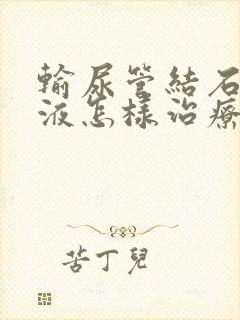 輸尿管結石
液怎樣治療
苦丁兒